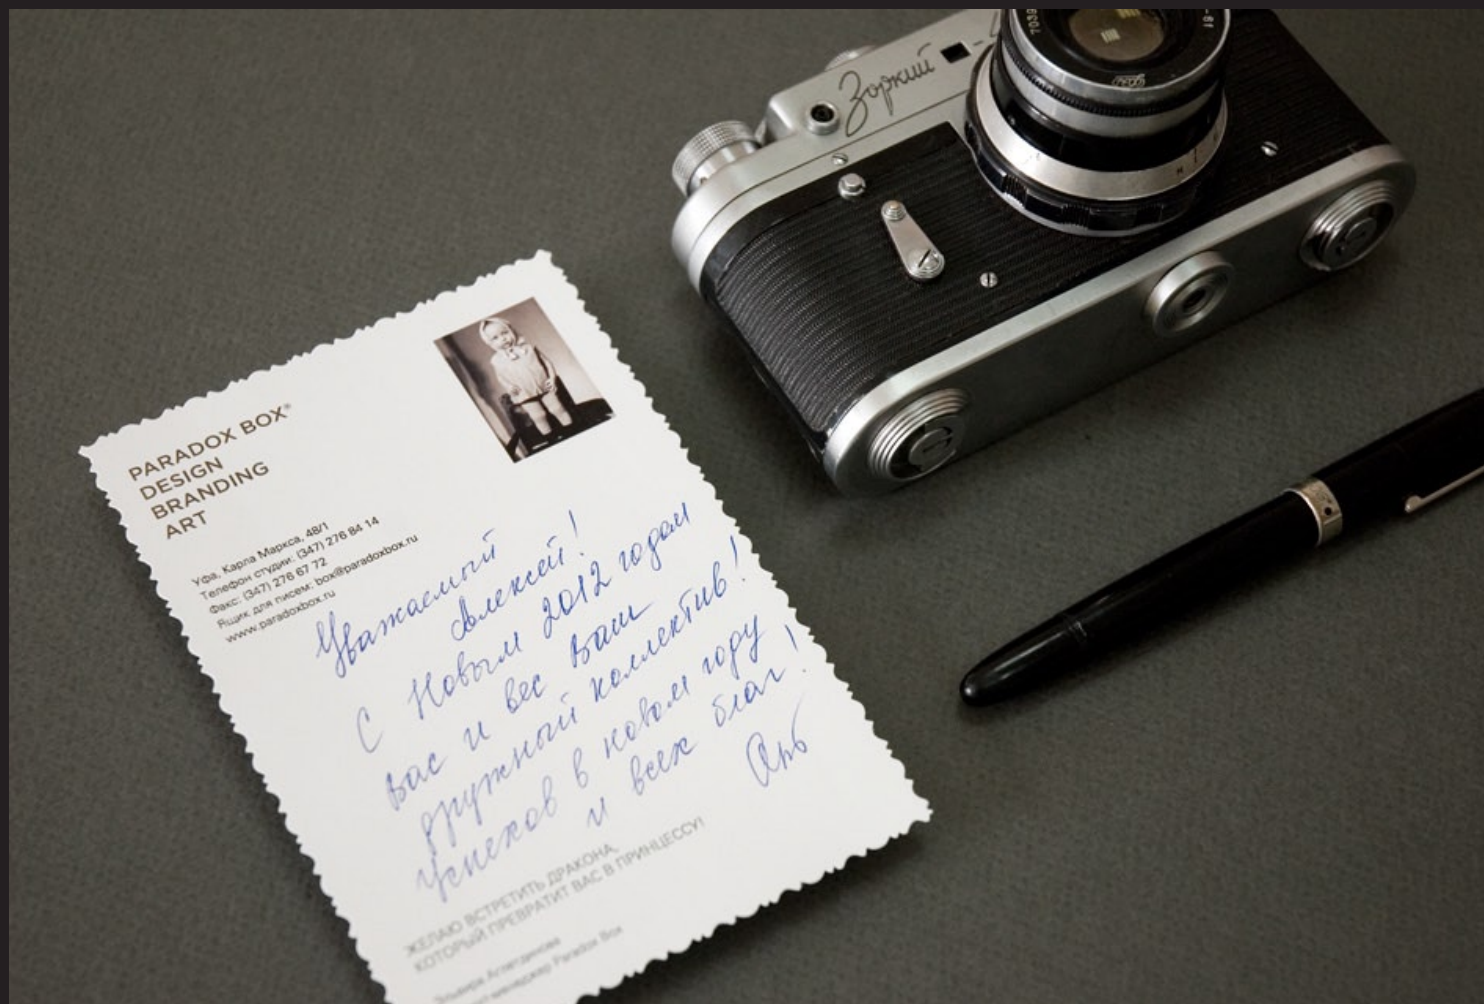 Зоркий
PARADOX BOX®
DESIGN
BRANDING
ART
Уфа, Карла Маркса, 48/1
Телефон студии: (347) 276 84 14
Факс: (347) 276 67 72
Ящик для писем: box@paradoxbox.ru
www.paradoxbox.ru
Уважаемый
Алексей!
С Новым 2012 годом
Вас и вес Ваш
дружный коллектив!
Успехов в новом году
и всех благ!
ЖЕЛАЮ ВСТРЕТИТЬ ДРАКОНА,
КОТОРЫЙ ПРЕВРАТИТ ВАС В ПРИНЦЕССУ!
Эльвира
менеджер Paradox Box